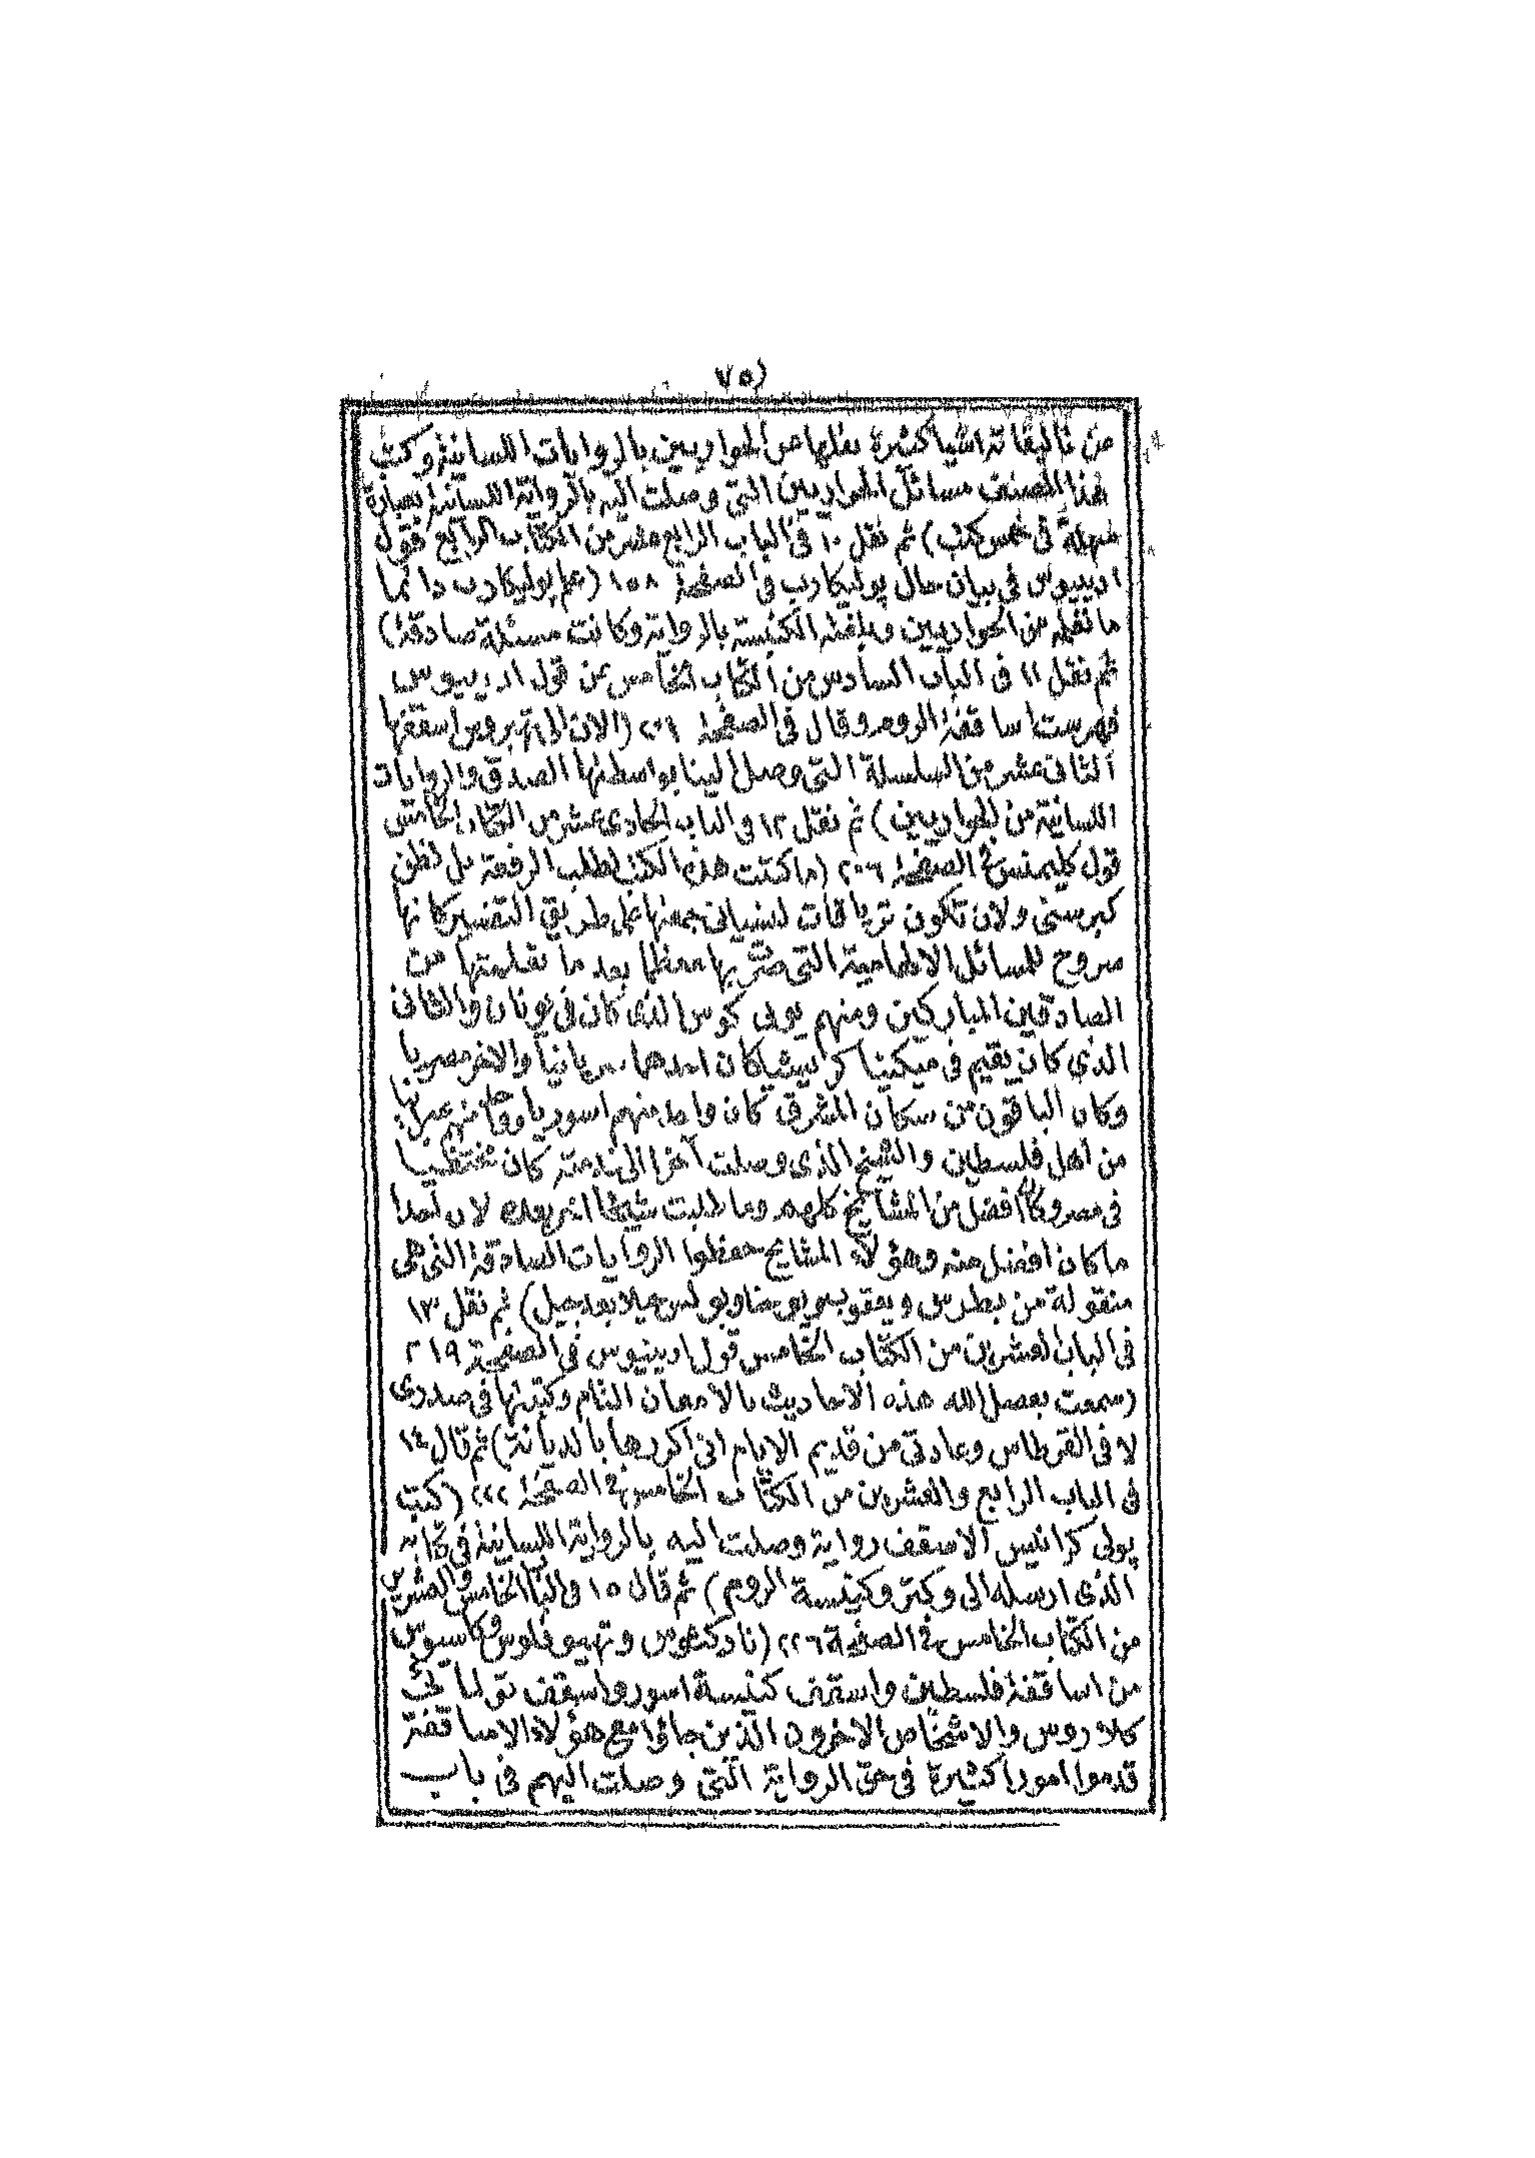 ٧٥)
من تأليفاته اشيا كثيرة نقلها من الحواريين بالروايات اللسانية وكتب
هذا المصنف مسائل الحواريين التي وصلت اليه بالرواية اللسانية بعبارة
سهلة فى خمس كتب) ثم نقل ١٠ فى الباب الرابع عشر من الكتاب الرابع قول
ارينيوس فى بيان حال پوليكارب فى الصفحة ١٥٨ (علم پوليكارب دائما
ما تعلمه من الحواريين وبلغته الكنيسة بالرواية وكانت مسئلة صادقة)
ثم نقل ١١ فى الباب السادس من الكتاب الخامس من قول ارينيوس
فهرست اساقفة الروم وقال فى الصفحة ٢٠١ (الان الى تهيروس اسقفها
الثانى عشر من السلسلة التى وصل الينا بواسطتها الصدق والروايات
اللسانية من الحواريين) ثم نقل ١٢ فى الباب الحادى عشر من الكتاب الخامس
قول كليمنس فى الصفحة ٢٠٦ (ما كتبت هذه الكتب لطلب الرفعة بل لظن
كبر سنى ولان تكون ترياقات لنسيانى جمعتها على طريق التفسير كانها
شروح للمسائل الالهامية التى صرت بها معظما بعد ما تعلمتها من
الصادقين المباركين ومنهم يونى كوس الذى كان فى يونان والثانى
الذي كان يقيم فى ميكنيا كرايشيا كان احدهما سريانيا والاخر مصريا
وكان الباقون من سكان المشرق كان واحد منهم اسوريا وواحد منهم عبرانيا
من اهل فلسطين والشيخ الذى وصلت آخرا الى خدمته كان مختفيا
فى مصر وكان افضل من المشايخ كلهم وما طلبت شيخا اخر بعده لان احدا
ما كان افضل منه وهؤلاء المشايخ حفظوا الروايات الصادقة التى هى
منقولة من بطرس ويعقوب ويوحنا وبولس جيلا بعد جيل) ثم نقل ١٣
فى الباب العشرين من الكتاب الخامس قول ارينيوس فى الصفحة ٢١٩
(سمعت بفضل الله هذه الاحاديث بالامعان التام وكتبتها فى صدرى
لا فى القرطاس وعادتى من قديم الايام انى اكررها بالديانة) ثم قال ١٤
فى الباب الرابع والعشرين من الكتاب الخامس فى الصفحة ٢٢٢ (كتب
پولى كراتيس الاسقف رواية وصلت اليه بالرواية اللسانية فى كتابه
الذى ارسله الى وكتر وكنيسة الروم) ثم قال ١٥ فى الباب الخامس والعشرين
من الكتاب الخامس فى الصفحة ٢٢٦ (ناركثوس وتهيوفلوس وكاسيوس
من اساقفة فلسطين واسقف كنيسة اسور واسقف تولمائى
كلاروس والاشخاص الاخرون الذين جاؤا مع هؤلاء الاساقفة
قدموا امورا كثيرة فى حق الرواية التى وصلت اليهم فى باب